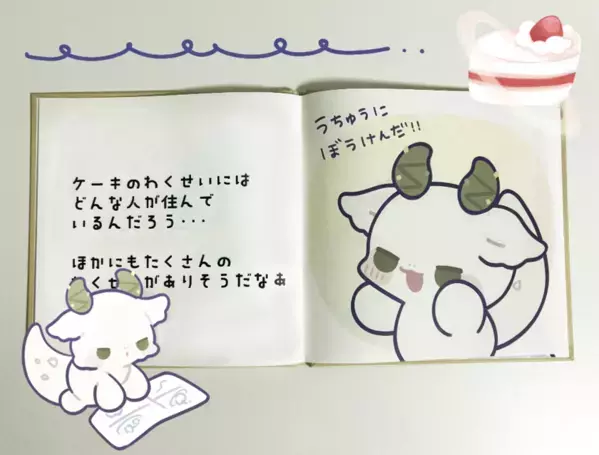 ケーキのわくせいには
どんな人が住んで
いるんだろう・・・
ほかにもたくさんの
がありそうだなぁ
うちゅうに
ぼうけんだ!!